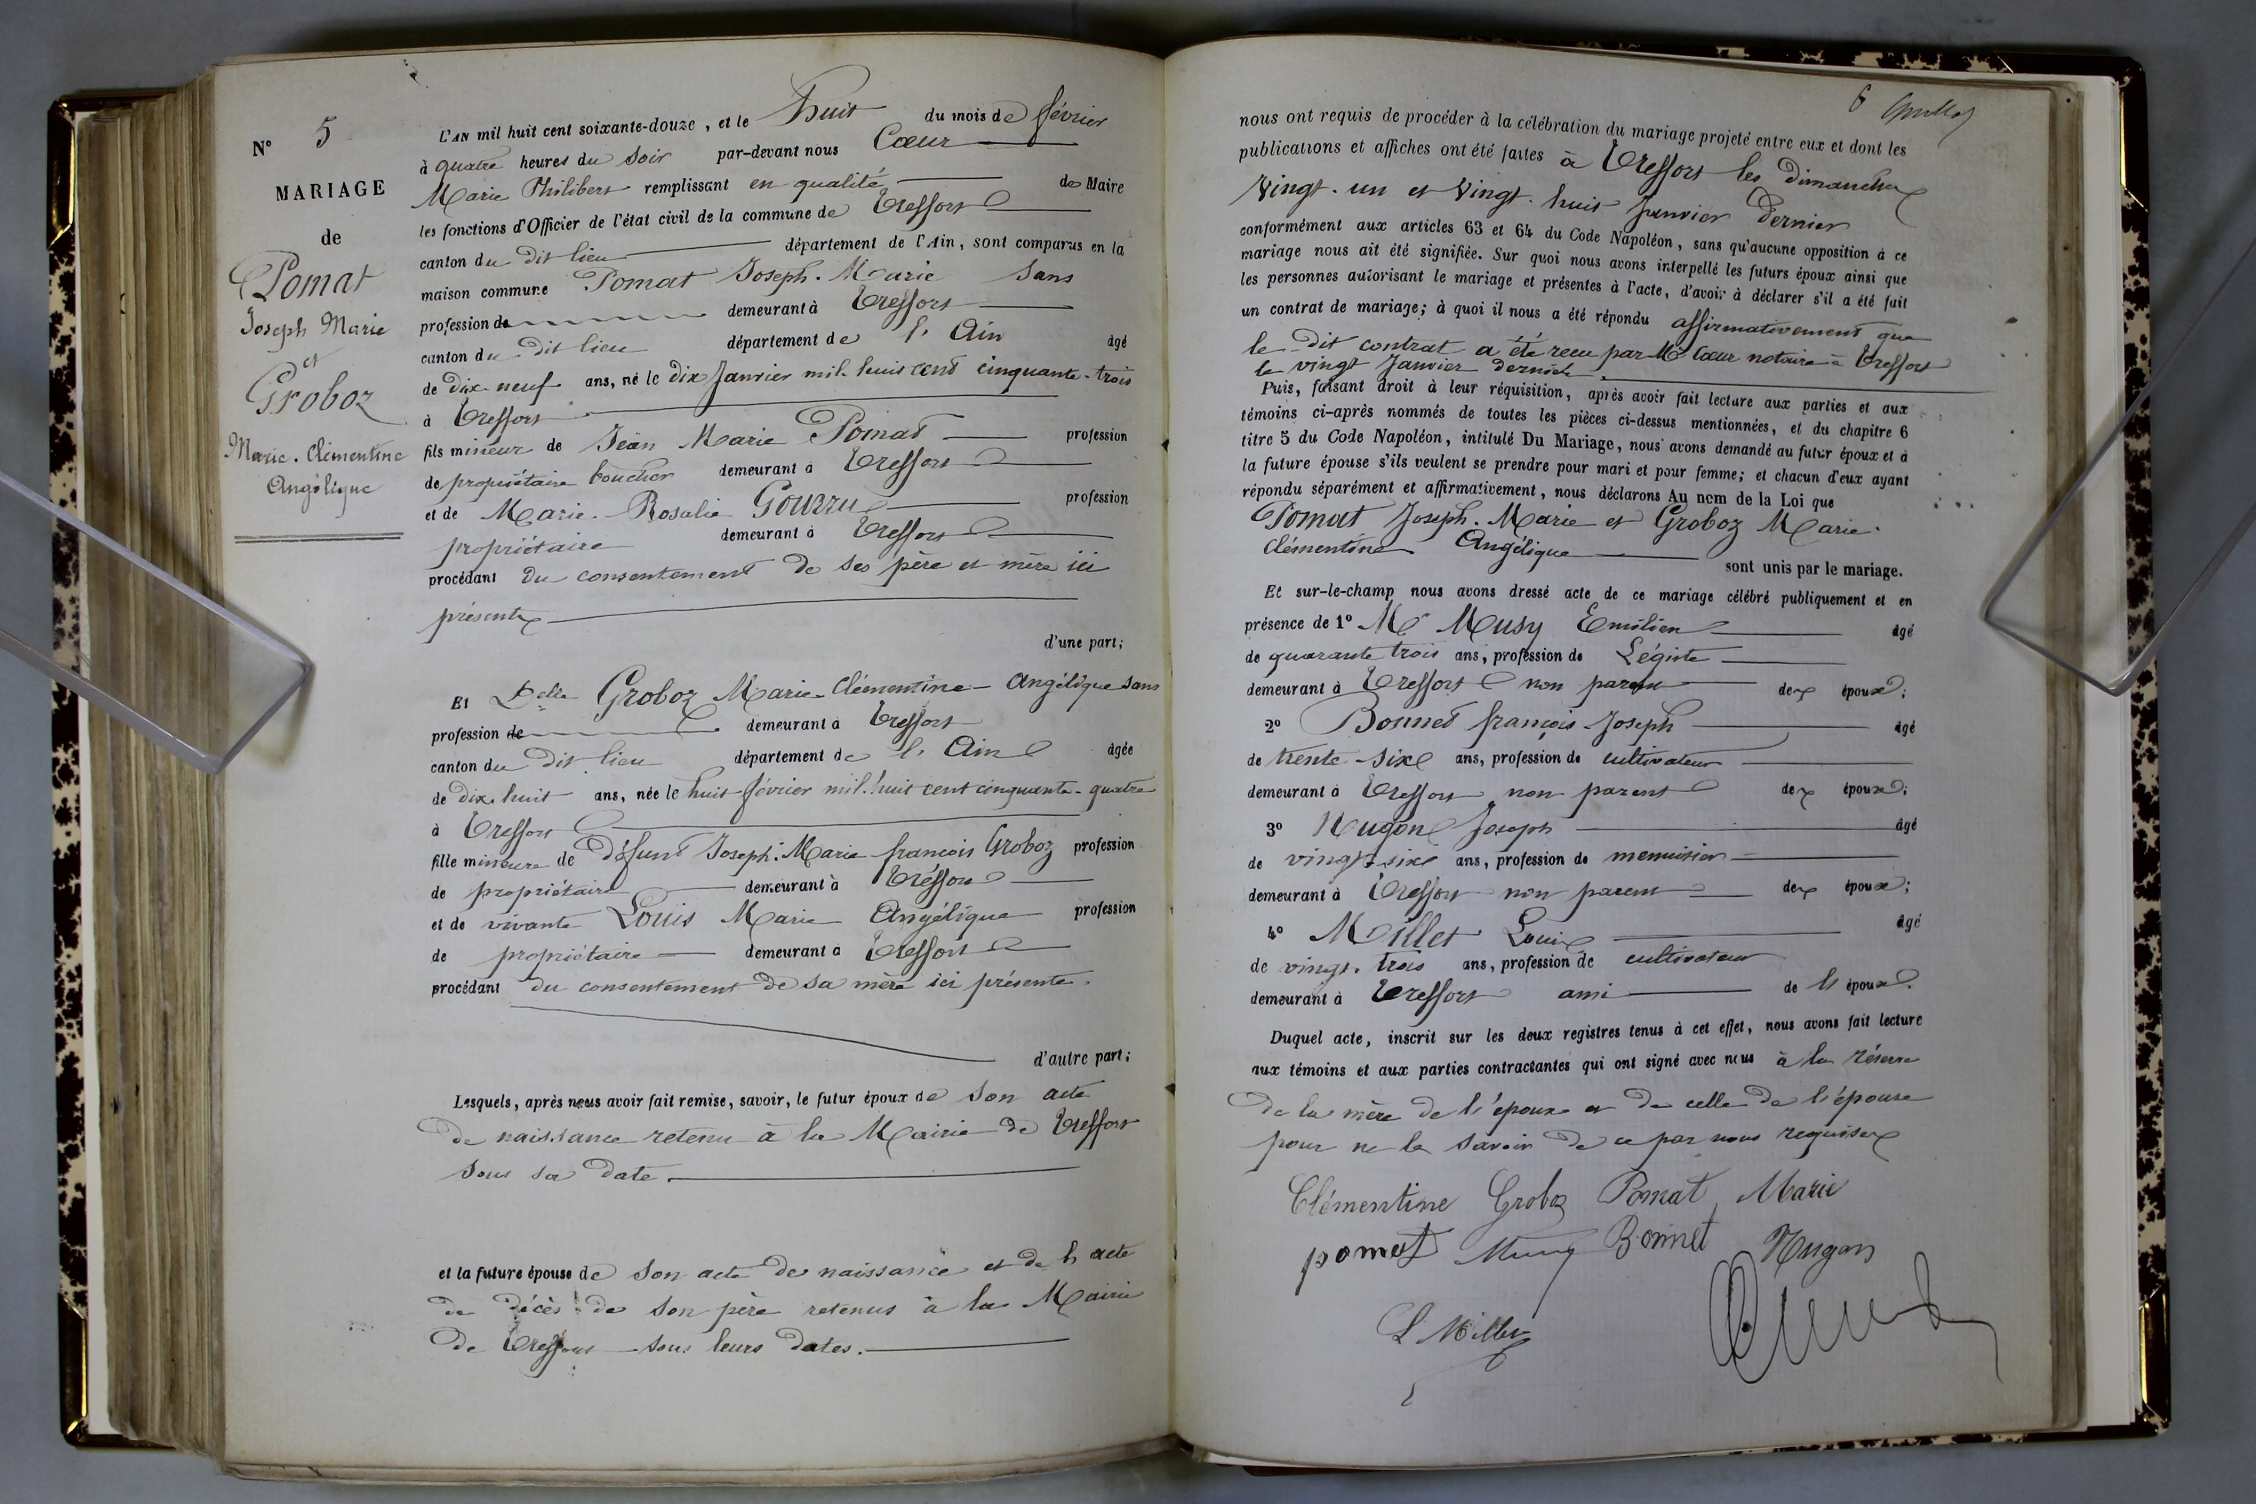 N° 5
MARIAGE
de
Pomat
Joseph Marie
et
Groboz
Marie. Clémentine
Angélique
L'AN mil huit cent soixante-douze, et le huit du mois de février
à quatre heures du soir par-devant nous Cœur
Marie Philibert remplissant en qualité de Maire
les fonctions d'Officier de l'état civil de la commune de Treffort
canton du dit lieu département de l'Ain, sont comparus en la
maison commune Pomat Joseph. Marie Sans
profession de demeurant à Treffort
canton du dit lieu département de l'Ain âgé
de dix-neuf ans, né le dix Janvier mil-huit cent cinquante-trois
à Treffort
fils mineur de Jean Marie Pomat profession
de propriétaire boucher demeurant à Treffort
et de Marie-Rosalie Gourru profession
propriétaire demeurant à Treffort
procédant du consentement de ses père et mère ici
présents
d'une part;
Et Delle Groboz Marie-Clémentine-Angélique sans
profession de demeurant à Treffort
canton du dit lieu département de l'Ain âgée
de dix-huit ans, née le huit février mil-huit cent cinquante-quatre
à Treffort
fille mineure de défunt Joseph. Marie françois Groboz profession
de propriétaire demeurant à Treffort
et de vivante Louis Marie Angélique profession
de propriétaire demeurant à Treffort
procédant du consentement de sa mère ici présente.
d'autre part;
Lesquels, après nous avoir fait remise, savoir, le futur époux de son acte
de naissance retenu à la Mairie de Treffort
sous sa date.
et la future épouse de son acte de naissance et de l'acte
de décès de son père retenus à la Mairie
de Treffort sous leurs dates.
6
nous ont requis de procéder à la célébration du mariage projeté entre eux et dont les
publications et affiches ont été faites à Treffort les dimanches
vingt-un et vingt-huit Janvier dernier
conformément aux articles 63 et 64 du Code Napoléon, sans qu'aucune opposition à ce
mariage nous ait été signifiée. Sur quoi nous avons interpellé les futurs époux ainsi que
les personnes autorisant le mariage et présentes à l'acte, d'avoir à déclarer s'il a été fait
un contrat de mariage; à quoi il nous a été répondu affirmativement que
le dit contrat a été recu par Me Cœur notaire à Treffort
le vingt Janvier dernier
Puis, faisant droit à leur réquisition, après avoir fait lecture aux parties et aux
témoins ci-après nommés de toutes les pièces ci-dessus mentionnées, et du chapitre 6
titre 5 du Code Napoléon, intitulé Du Mariage, nous avons demandé au futur époux et à
la future épouse s'ils veulent se prendre pour mari et pour femme; et chacun d'eux ayant
répondu séparément et affirmativement, nous déclarons Au nom de la Loi que
Pomat Joseph. Marie et Groboz Marie
Clémentine Angélique sont unis par le mariage.
Et sur-le-champ nous avons dressé acte de ce mariage célébré publiquement et en
présence de 1° Mr Musy Emilien âgé
de quarante trois ans, profession de Légiste
demeurant à Treffort non parent des époux;
2° Bonnet françois-Joseph âgé
de trente-six ans, profession de cultivateur
demeurant à Treffort non parent des époux;
3° Nugon Joseph âgé
de vingt-six ans, profession de menuisier
demeurant à Treffort non parent des époux;
4° Millet Louis âgé
de vingt. trois ans, profession de cultivateur
demeurant à Treffort ami de l'époux.
Duquel acte, inscrit sur les deux registres tenus à cet effet, nous avons fait lecture
aux témoins et aux parties contractantes qui ont signé avec nous à la réserve
de la mère de l'époux et de celle de l'épouse
pour ne le savoir de ce par nous requises
Clémentine Groboz Pomat Marie
pomat Musy Bonnet Nugon
L Millet